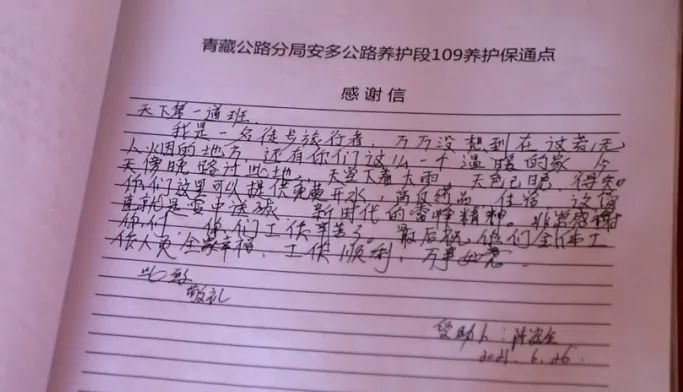 青藏公路分局安多公路养护段109养护保通点
感谢信
天下第一道班:
我是一名徒步旅行者,万万没想到在这若无
人烟的地方,还有你们这么一个温暖的家。今
天傍晚路过此地,天空下着大雨,天色已晚,得知
你们这里可以提供免费开水,高反药品,住宿,这简
直就是雪中送碳,新时代的雷峰精神。非常感谢
你们,你们工作辛苦了。最后祝他们全体工
作人员全家幸福,工作顺利,万事如意。
此致
敬礼
受助人:
2021.6.26.